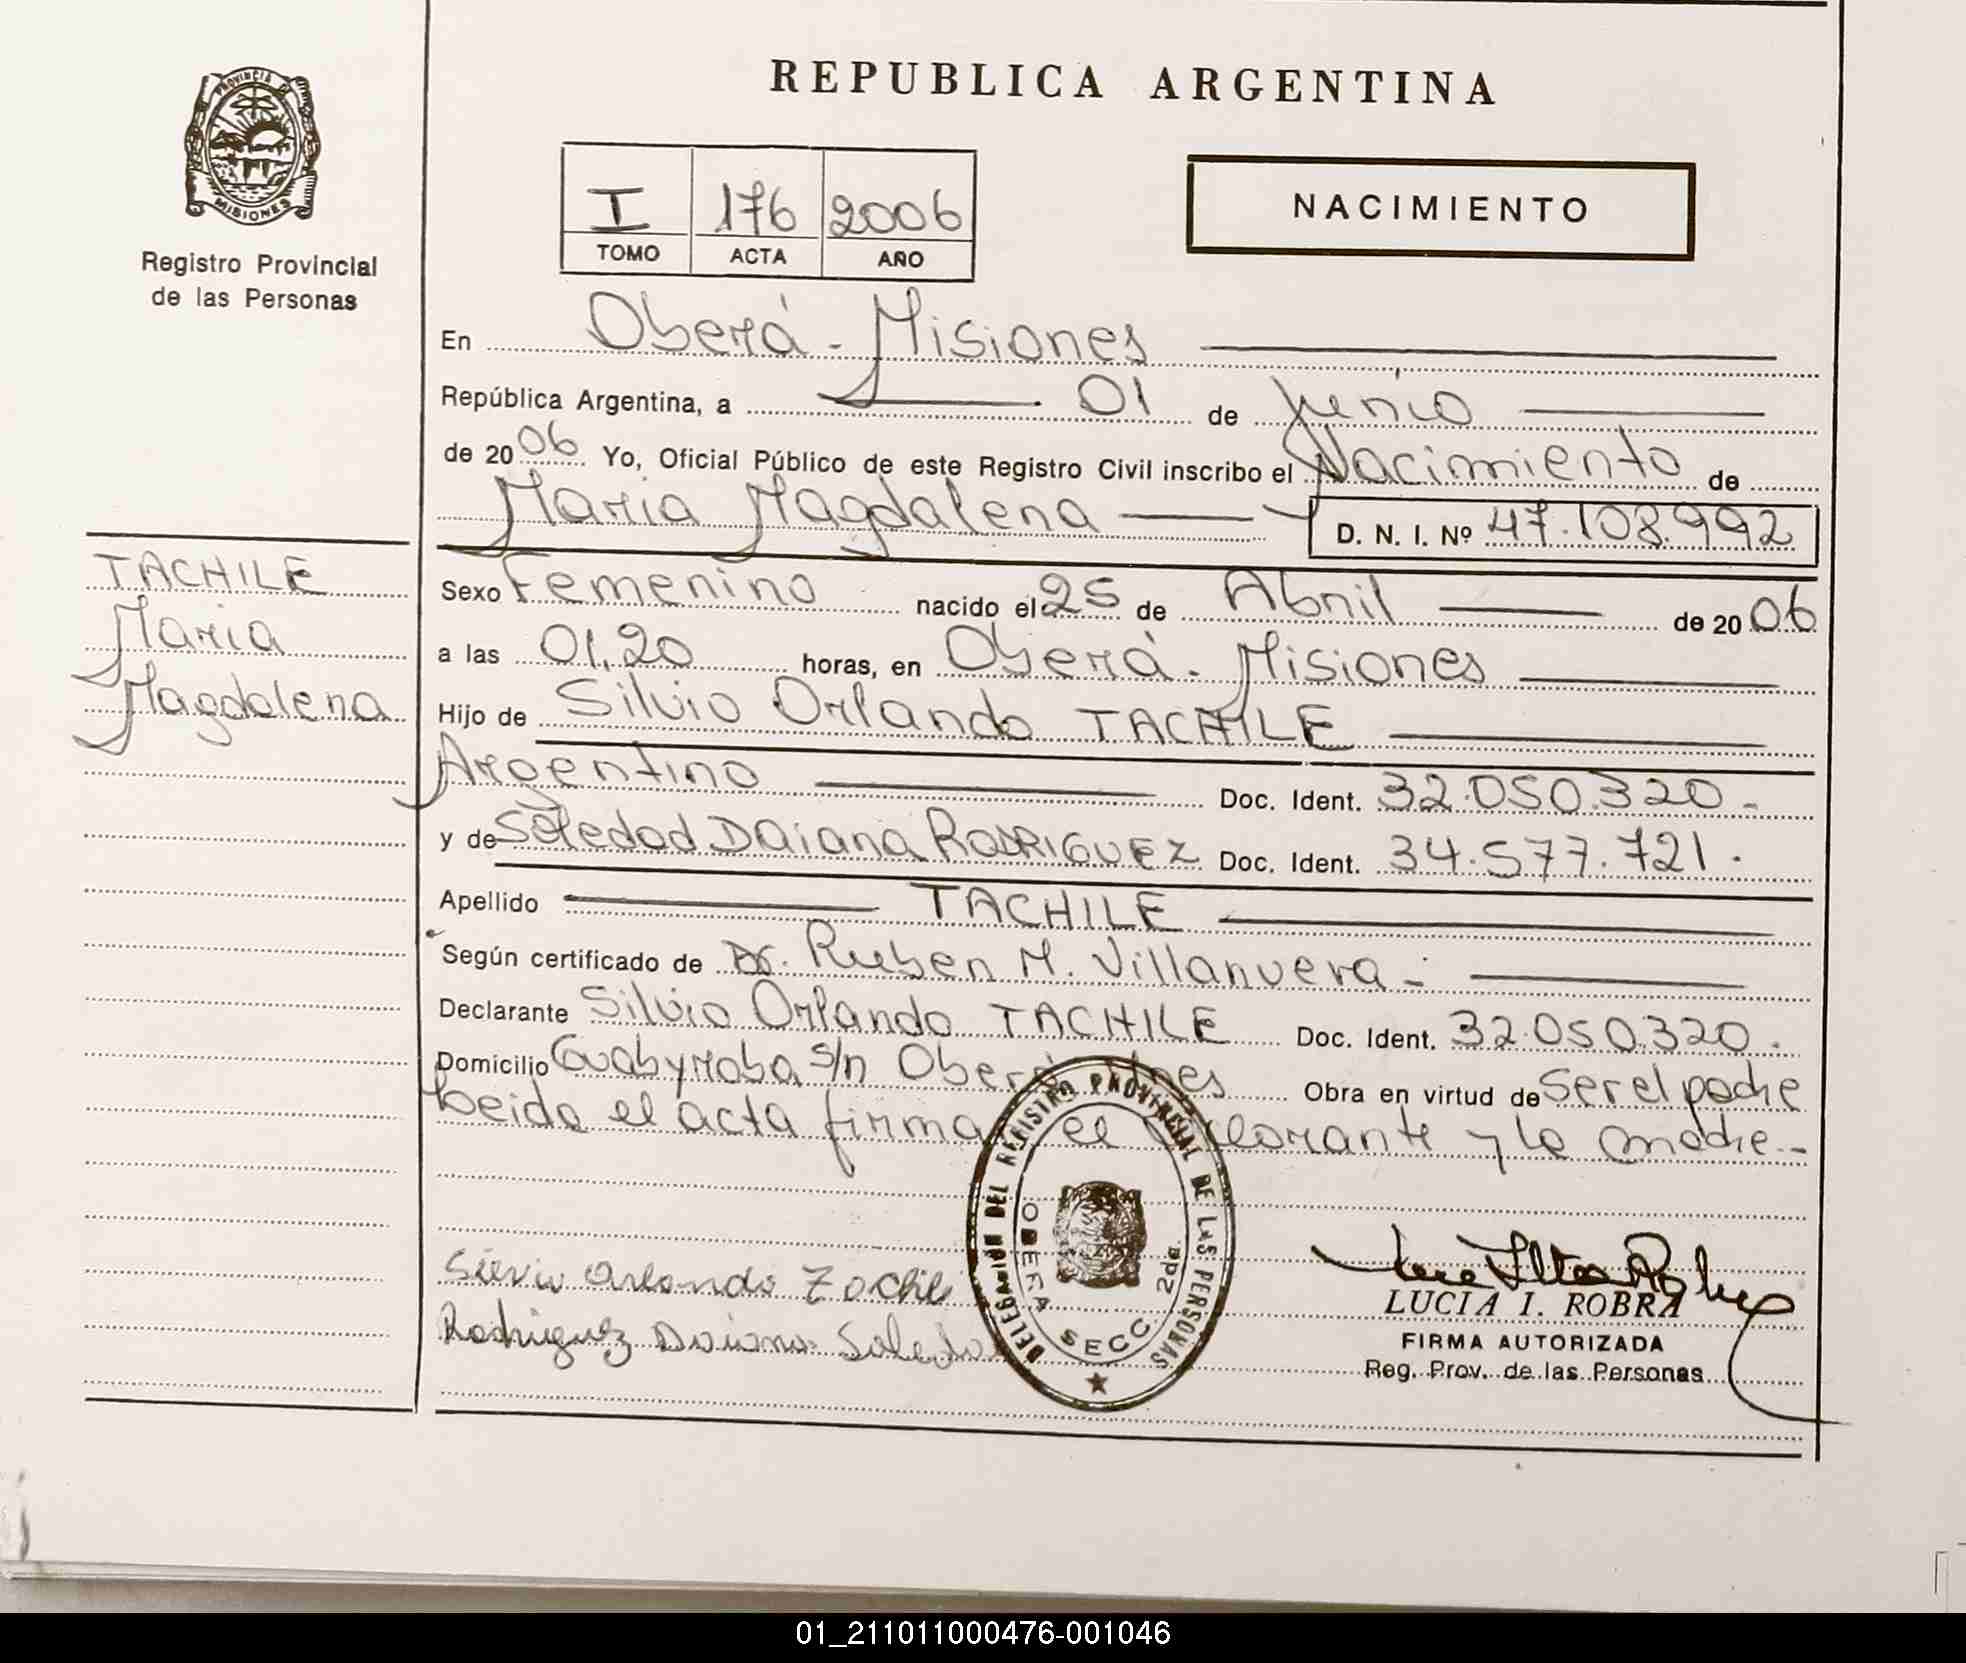 REPUBLICA ARGENTINA
PROVINCIA
MISIONES
Registro Provincial
de las Personas
I 176 2006
TOMO ACTA AÑO
NACIMIENTO
En Oberá - Misiones
República Argentina, a 01 de Junio
de 2006 Yo, Oficial Público de este Registro Civil inscribo el Nacimiento de
Maria Magdalena D. N. I. Nº 47.108.992
TACHILE
Maria
Magdalena
Sexo Femenino nacido el 25 de Abril de 2006
a las 01,20 horas, en Oberá - Misiones
Hijo de Silvio Orlando TACHILE
Argentino Doc. Ident. 32.050.320-
y de Soledad Daiana RODRIGUEZ Doc. Ident. 34.577.721.
Apellido TACHILE
Según certificado de Dr. Ruben M. Villanueva -
Declarante Silvio Orlando TACHILE Doc. Ident. 32.050.320.
Domicilio Guabyroba s/n Oberá Obra en virtud de Ser el padre
Leida el acta firma el declarante y la madre.-
Silvio Orlando Tachile
Rodriguez Daiana Soledad
DELEGACIÓN DEL REGISTRO PROVINCIAL DE LAS PERSONAS
OBERA SECC. 2da.
LUCIA I. ROBRA
FIRMA AUTORIZADA
Reg. Prov. de las Personas
01_211011000476-001046